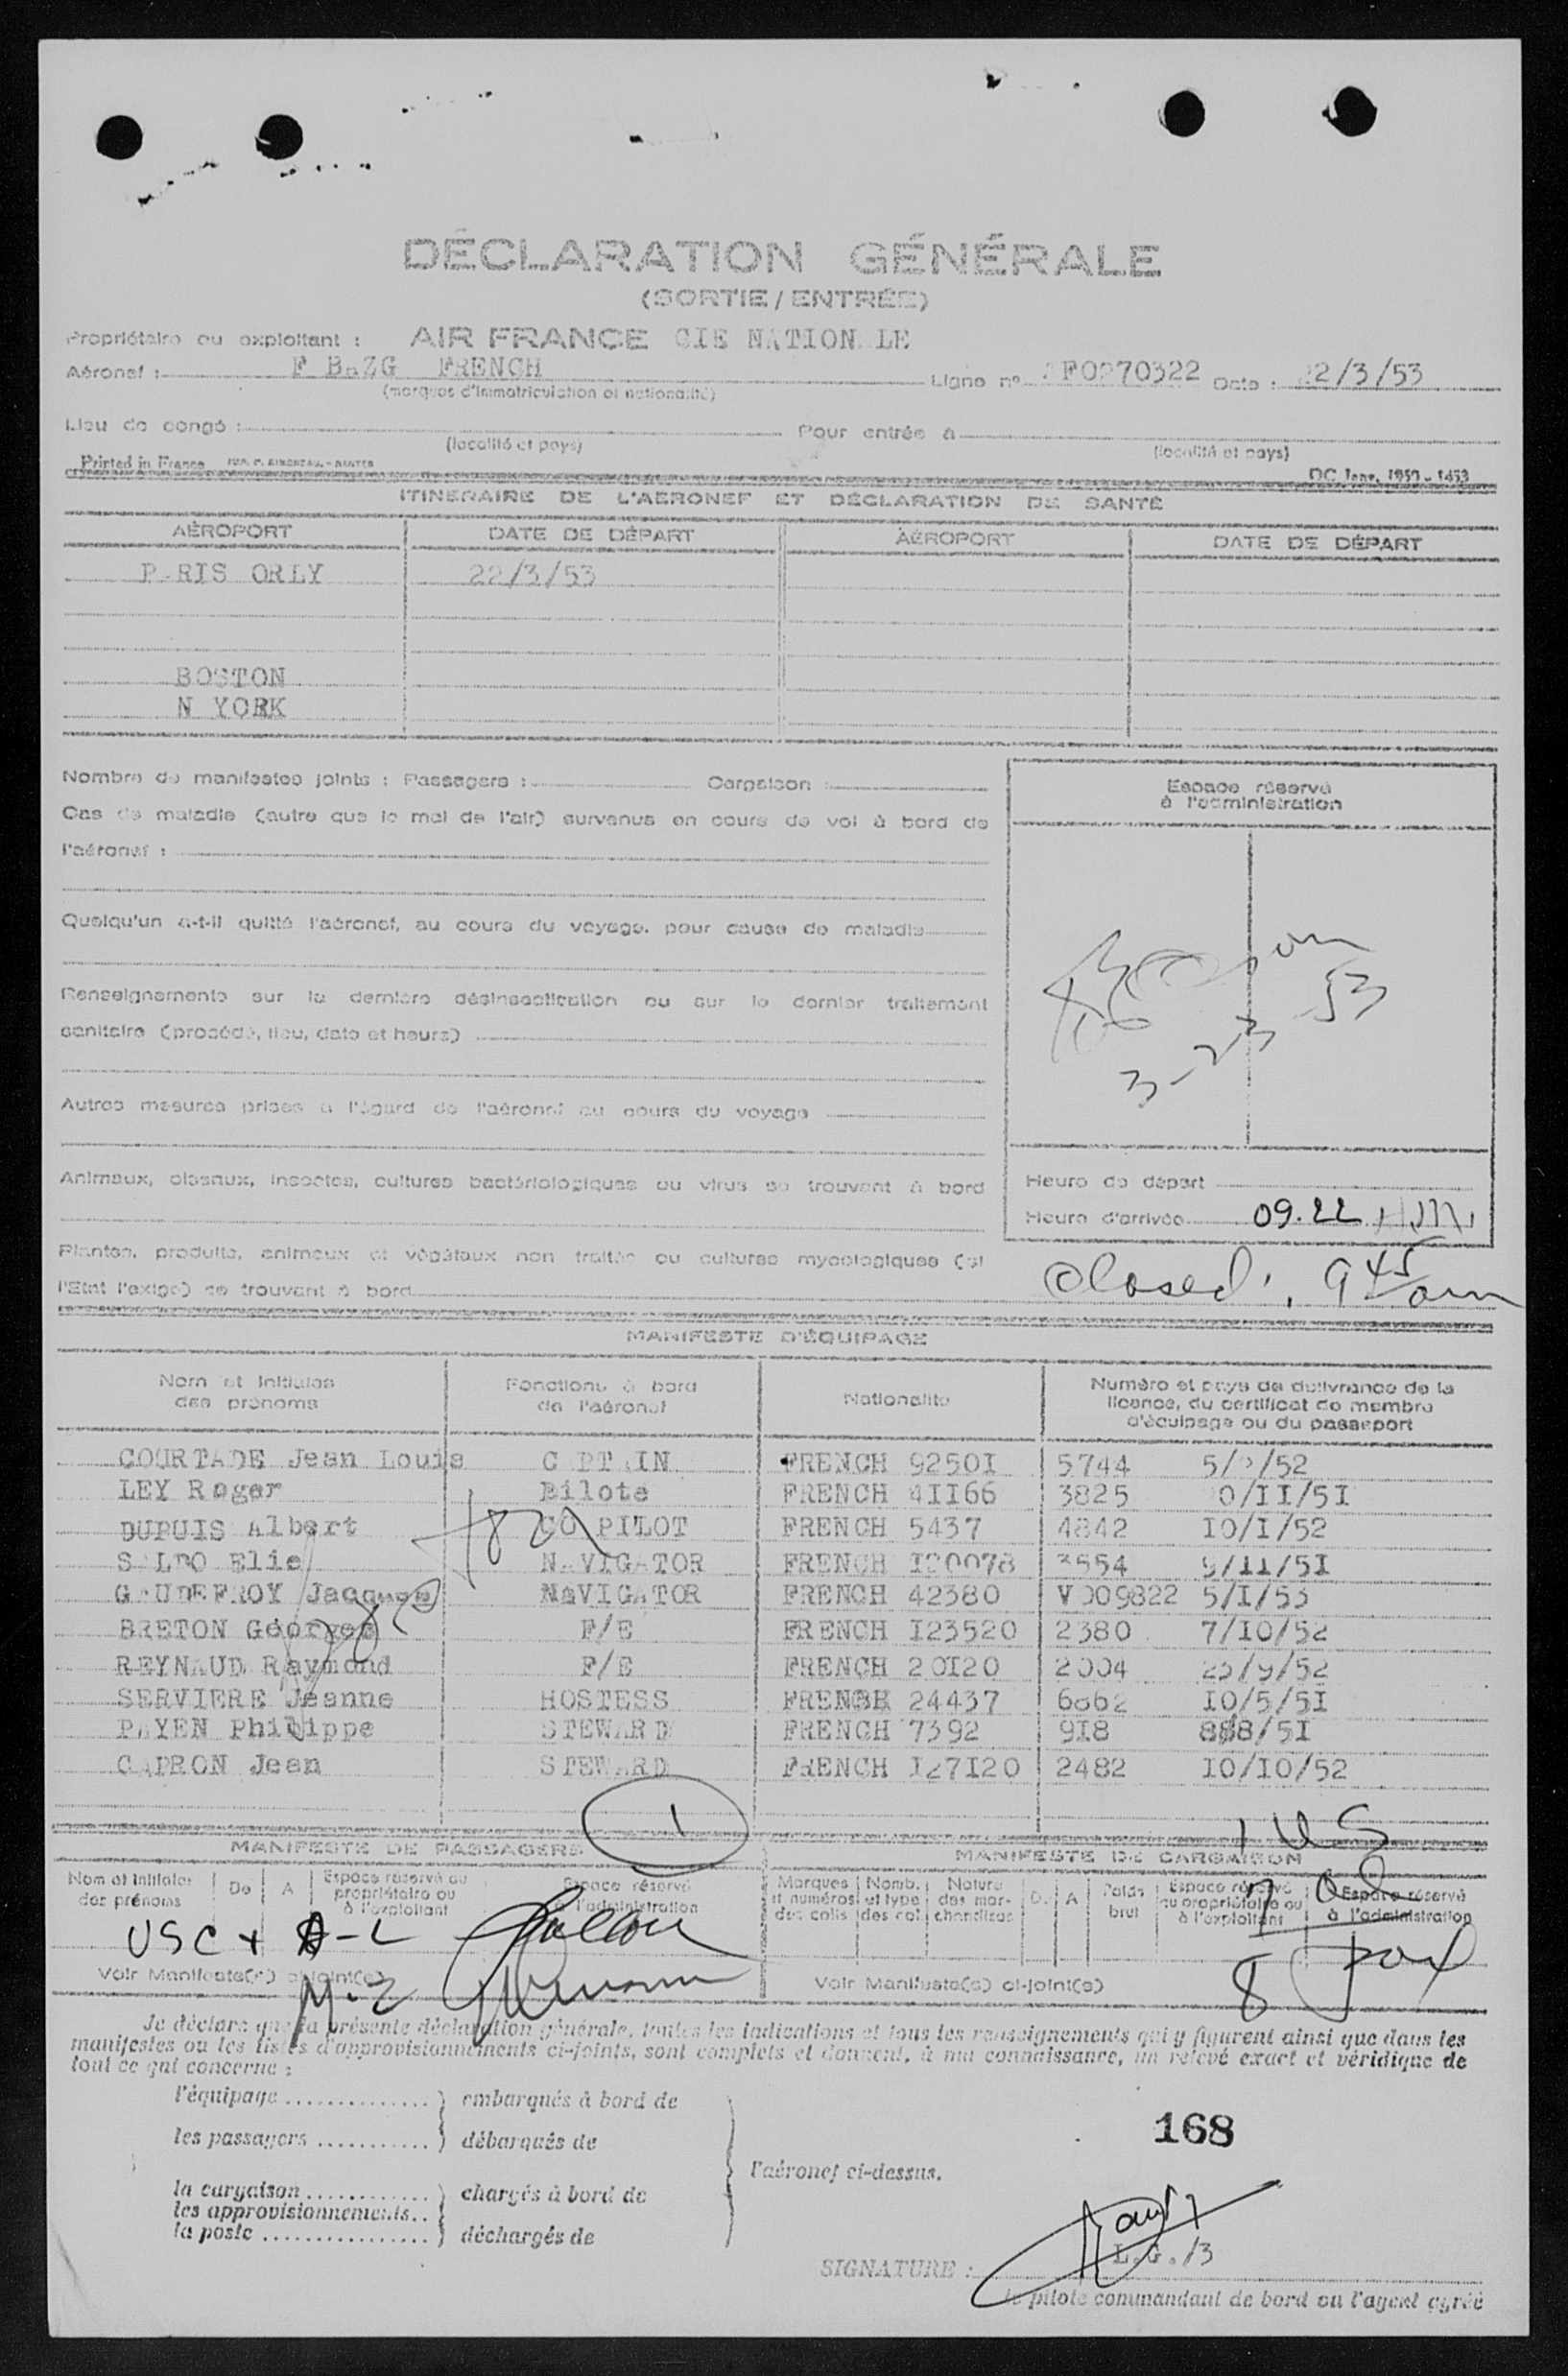 DÉCLARATION GÉNÉRALE
(SORTIE / ENTRÉE)
Propriétaire ou exploitant : AIR FRANCE CIE NATION LE
Aéronef : F BAZG FRENCH Ligne no Date : 22/3/53
(marques d'immatriculation et nationalité)
Lieu de congé : Pour entrée à
(localité et pays) (localité et pays)
Printed in France DC Janv. 1953 - 1453
ITINERAIRE DE L'AÉRONEF ET DÉCLARATION DE SANTÉ
AÉROPORT DATE DE DÉPART AÉROPORT DATE DE DÉPART
P RIS ORLY 22/3/53
BOSTON
N YORK
Nombre de manifestes joints : Passagers : Cargaison :
Cas de maladie (autre que le mal de l'air) survenus en cours de vol à bord de
l'aéronef :
Quelqu'un a-t-il quitté l'aéronef, au cours du voyage, pour cause de maladie
Renseignements sur la dernière désinsectisation ou sur le dernier traitement
sanitaire (procédé, lieu, date et heure)
Autres mesures prises à l'égard de l'aéronef au cours du voyage
Animaux, oiseaux, insectes, cultures bactériologiques ou virus se trouvant à bord
Plantes, produits, animaux et végétaux non traités ou cultures mycologiques (si
l'Etat l'exige) se trouvant à bord
Espace réservé
à l'administration
3-23-53
Heure de départ
Heure d'arrivée 09.22
Closed, 9 45 am
MANIFESTE D'ÉQUIPAGE
Nom et initiales des prénoms Fonctions à bord de l'aéronef Nationalité Numéro et pays de délivrance de la licence, du certificat de membre d'équipage ou du passeport
COURTADE Jean Louis C PT IN FRENCH 9250I 5744 5/ /52
LEY Roger Pilote FRENCH 4II66 3825 0/II/5I
DUPUIS Albert CO PILOT FRENCH 5437 4842 IO/I/52
S LDO Elie NAVIGATOR FRENCH I20078 3554 9/11/5I
G UDEFROY Jacques NAVIGATOR FRENCH 42380 V 009822 5/I/53
BRETON Georges F/E FRENCH I23520 2380 7/IO/52
REYNAUD Raymond F/E FRENCH 20I20 2004 25/9/52
SERVIERE Jeanne HOSTESS FRENCH 24437 6862 IO/5/5I
PAYEN Philippe STEWARD FRENCH 7392 9I8 888/5I
CAPRON Jean STEWARD FRENCH I27I20 2482 IO/IO/52
1
MANIFESTE DE PASSAGERS MANIFESTE DE CARGAISON
1 US
Nom et initiales des prénoms De A Espace réservé au propriétaire ou à l'exploitant Espace réservé à l'administration
Marques et numéros des colis Nomb. et type des col. Nature des marchandises D. A Poids brut Espace réservé au propriétaire ou à l'exploitant Espace réservé à l'administration
USC + A-L
Voir Manifeste(s) ci-joint(s) Voir Manifeste(s) ci-joint(s)
M-2
8 pax
Je déclare que la présente déclaration générale, toutes les indications et tous les renseignements qui y figurent ainsi que dans les
manifestes ou les listes d'approvisionnements ci-joints, sont complets et donnent, à ma connaissance, un relevé exact et véridique de
tout ce qui concerne :
l'équipage .............. embarqués à bord de
les passagers ........... débarqués de
l'aéronef ci-dessus.
la cargaison ............ chargés à bord de
les approvisionnements..
la poste ................ déchargés de
168
L.G./3
SIGNATURE :
le pilote commandant de bord ou l'agent agréé